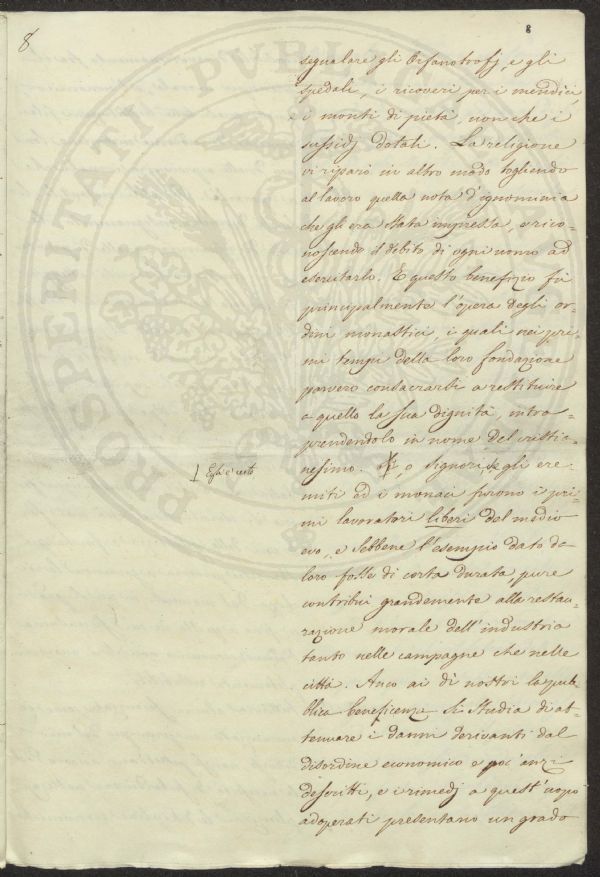 8
8
segnalare gli Orfanotrofj, e gli
spedali, i ricoveri per i mendici,
i monti di pietà, non che i
sussidj dotali. La religione
vi riparò in altro modo togliendo
al lavoro quella nota d'ignominia
che gli era stata impressa, e rico=
noscendo il debito di ogni uomo ad
esercitarlo. E questo benefizio fù
principalmente l'opera degli or=
dini monastici, i quali nei pri=
mi tempi della loro fondazione
parvero consacrarsi a restituire
a quello la sua dignità, intra=
prendendolo in nome del cristia=
nesimo. o Signori gli ere=
Egli è certo
miti ed i monaci furono i pri=
mi lavoratori liberi del medio
evo, e sebbene l'esempio dato da
loro fosse di corta durata, pure
contribuì grandemente alla restau=
razione morale dell'industria
tanto nelle campagne che nelle
città. Anco ai dì nostri la pub=
blica beneficenza si studia di at=
tenuare i danni derivanti dal
disordine economico poc'anzi
descritti, e i rimedj a quest'uopo
adoperati presentano un grado
PROSPERITATI PVBLIC